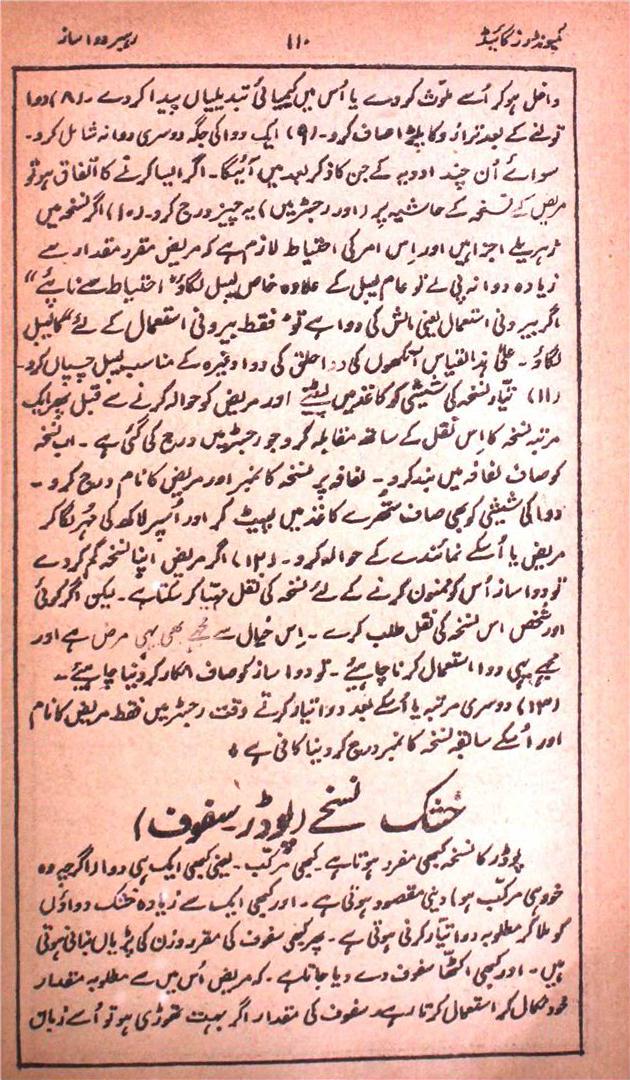 کمپونڈرز گائیڈ ۱۱۰ رہبر دوا ساز
داخل ہو کر اُسے ملوّث کر دے یا اُس میں کیمیائی تبدیلیاں پیدا کر دے ۔ (۸) دوا
تولنے کے بعد ترازو کا پلڑا صاف کرو ۔ (۹) ایک دوا کی جگہ دوسری دوا نہ شامل کرو۔
سوائے اُن چند ادویہ کے جن کا ذکر بعد میں آئیگا۔ اگر ایسا کرنے کا اتفاق ہو تو
مریض کے نسخہ کے حاشیہ پر (اور رجسٹر میں) یہ چیز درج کرو ۔ (۱۰) اگر نسخہ میں
زہریلے اجزا ہیں اور اِس امر کی احتیاط لازم ہے کہ مریض مقرر مقدار سے
زیادہ دوا نہ پی لے تو عام لیبل کے علاوہ خاص لیبل لگاؤ "احتیاط سے ناپئے"
اگر بیرونی استعمال یعنی مالش کی دوا ہے تو "فقط بیرونی استعمال کے لئے" کا لیبل
لگاؤ ۔ علیٰ ہذالقیاس آنکھوں کی دوا حلق کی دوا وغیرہ کے مناسب لیبل چسپاں کرو۔
(۱۱) تیار نسخہ کی شیشی کو کاغذ میں لپیٹنے اور مریض کو حوالہ کرنے سے قبل پھر ایک
مرتبہ نسخہ کا اِس نقل کے ساتھ مقابلہ کرو جو رجسٹر میں درج کی گئی ہے ۔ اب نسخہ
کو صاف لفافہ میں بند کرو ۔ لفافہ پر نسخہ کا نمبر اور مریض کا نام درج کرو ۔
دوا کی شیشی کو بھی صاف ستھرے کاغذ میں لپیٹ کر اور اُسپر لاکھ کی مُہر لگا کر
مریض یا اُسکے نمائندے کے حوالہ کرو ۔ (۱۲) اگر مریض اپنا نسخہ گم کر دے
تو دوا ساز اُس کو ممنون کرنے کے لئے نسخہ کی نقل مہیّا کر سکتا ہے ۔ لیکن اگر کوئی
اور شخص اس نسخہ کی نقل طلب کرے ۔ اِس خیال سے مجھے بھی یہی مرض ہے اور
مجھے یہی دوا استعمال کرنا چاہیئے ۔ تو دوا ساز کو صاف انکار کر دینا چاہیئے ۔
(۱۳) دوسری مرتبہ یا اُسکے بعد دوا تیار کرتے وقت رجسٹر میں فقط مریض کا نام
اور اُسکے سابقہ نسخہ کا نمبر درج کر دینا کافی ہے ۔
خُشک نسخے (پوڈر ۔ سفوف)
پوڈر کا نسخہ کبھی مفرد ہوتا ہے کبھی مرکّب ۔ یعنی کبھی ایک ہی دوا (اگرچہ وہ
خود ہی مرکّب ہو) دینی مقصود ہوتی ہے ۔ اور کبھی ایک سے زیادہ خشک دواؤں
کو ملا کر مطلوبہ دوا تیّار کرنی ہوتی ہے ۔ پھر کبھی سفوف کی مقرر وزن کی پڑیاں بنانی ہوتی
ہیں ۔ اور کبھی اکٹھّا سفوف دے دیا جاتا ہے ۔ کہ مریض اُس میں سے مطلوبہ مقدار
خود نکال کر استعمال کرتا رہے ۔ سفوف کی مقدار اگر بہت تھوڑی ہو تو اُسے زبان